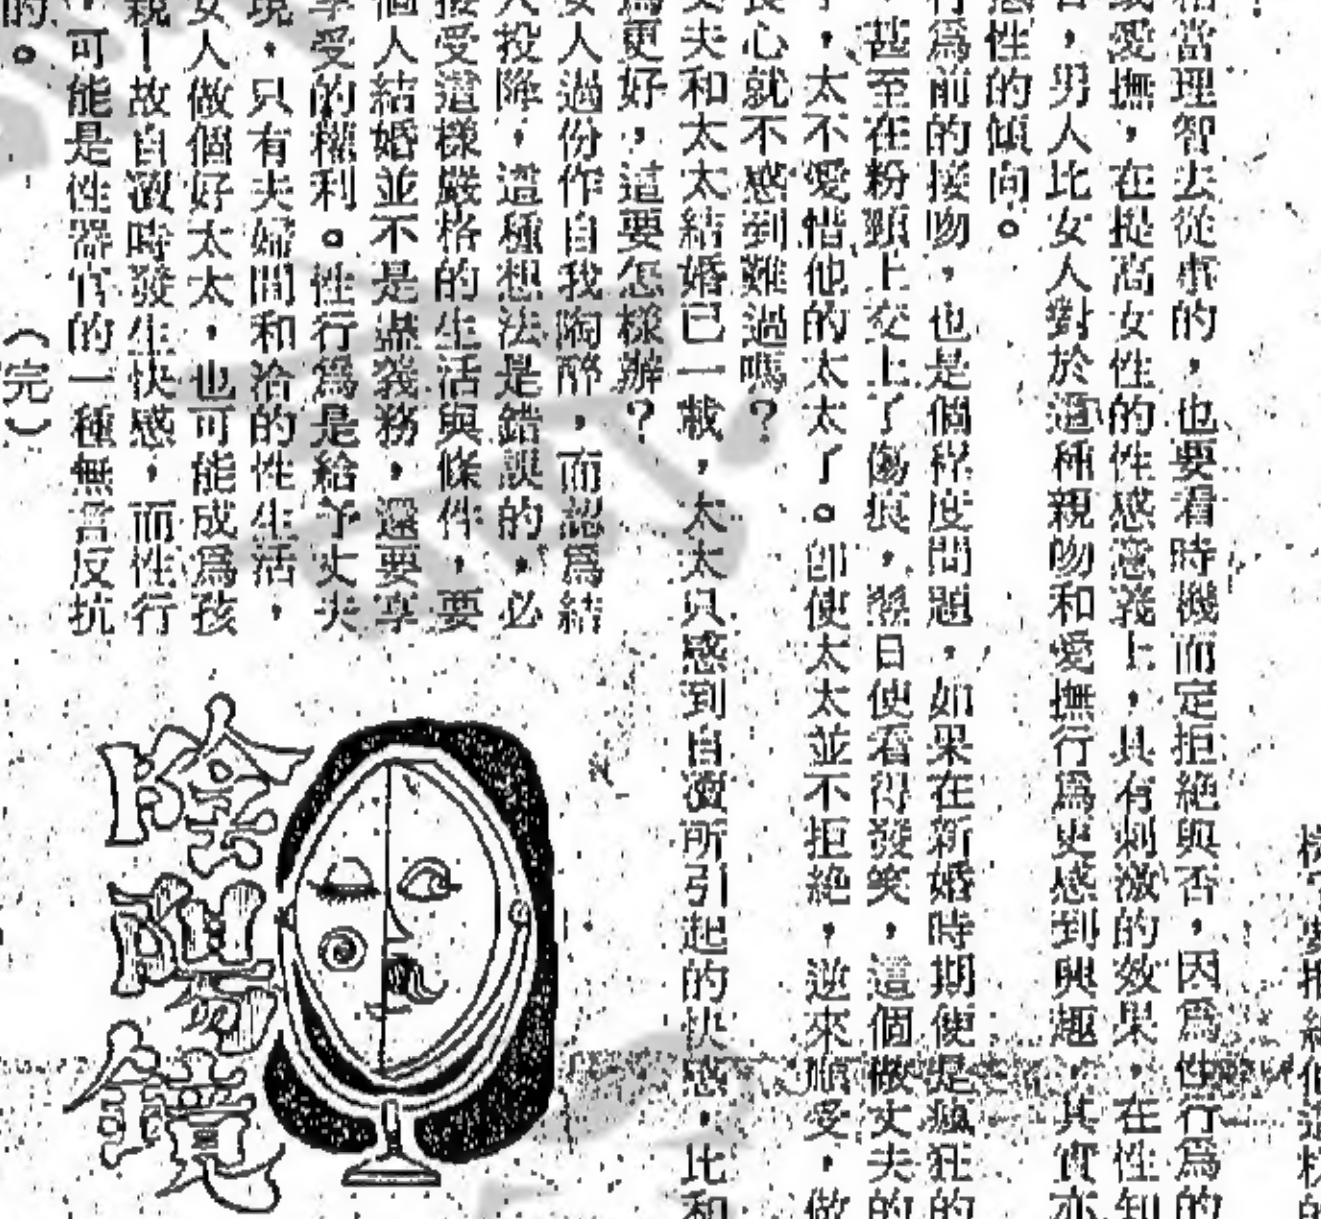 當理智去從事的，也要看時機而定拒絕與否，因爲性行爲的
愛撫，在提高女性的性感意義上，具有刺激的效果，在性知
，男人比女人對於這種親吻和愛撫行爲更感到興趣，其實亦
性的傾向。
爲前的接吻，也是個程度問題，如果在新婚時期便是瘋狂的
，甚至在粉頸上交上了傷痕，翌日便看得發笑，這個做丈夫的
，太不愛惜他的太太了。卽使太太並不拒絕，逆來順受，做
良心就不感到難過嗎？
丈夫和太太結婚已一載，太太只感到自瀆所引起的快感，比和
爲更好，這要怎樣辦？
女人過份作自我陶醉，而認爲結
人投降，這種想法是錯誤的，必
接受這樣嚴格的生活與條件，要
個人結婚並不是盡義務，還要享
享受的權利。性行爲是給予丈夫
現，只有夫婦間和洽的性生活，
女人做個好太太，也可能成爲孩
親—故自瀆時發生快感，而性行
，可能是性器官的一種無言反抗
的。（完）
陰陽鏡